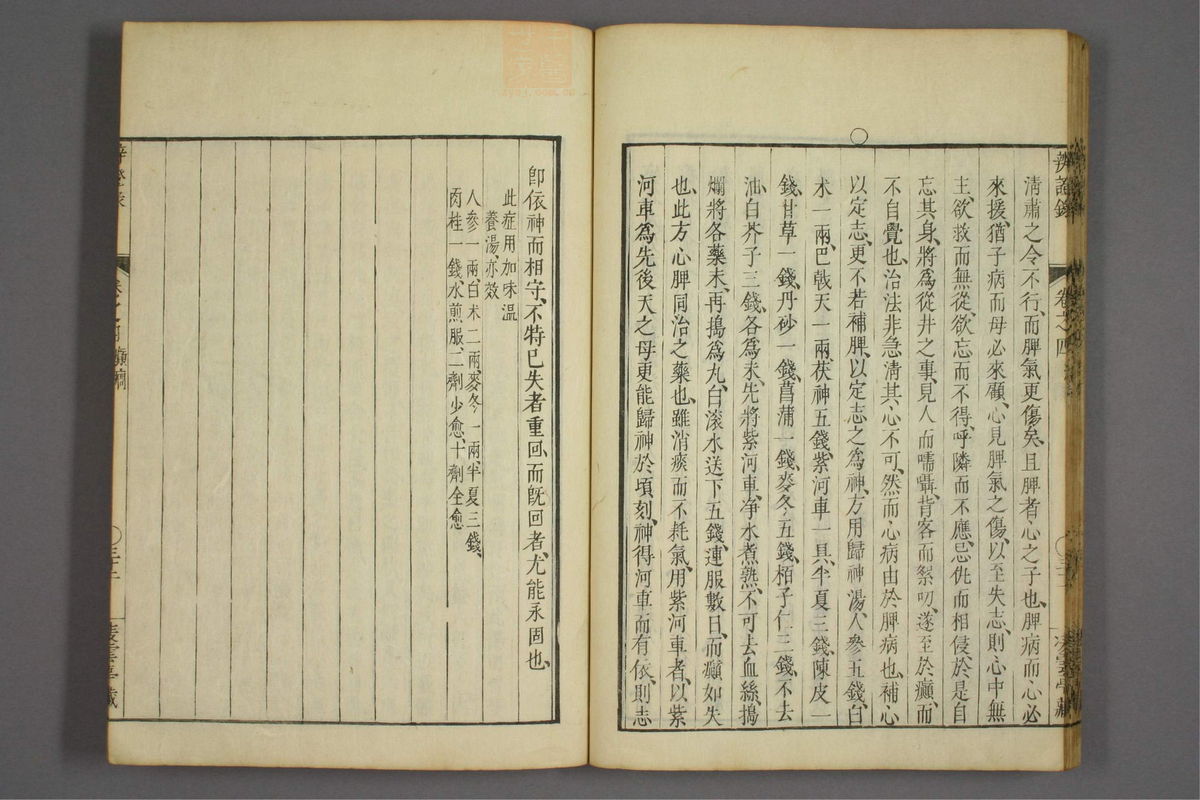 辨證錄
卷之四
清肅之令不行、而脾氣更傷矣、且脾者心之子也、脾病而心必
來援、猶子病而母必來顧、心見脾氣之傷、以至失志、則心中無
主、欲救而無從、欲忘而不得、呼隣而不應、忌仇而相侵、於是自
忘其身、將爲從井之事、見人而嚅囁、背客而絮叨、遂至於癲、而
不自覺也、治法非急清其心不可、然而心病由於脾病也、補心
以定志、更不若補脾、以定志之爲神、方用歸神湯、人參五錢、白
术一兩、巴戟天一兩、茯神五錢、紫河車一具、半夏三錢、陳皮一
錢、甘草一錢、丹砂一錢、菖蒲一錢、麥冬五錢、栢子仁三錢、不去
油、白芥子三錢、各爲末、先將紫河車、净水煮熟、不可去血絲、搗
爛、將各藥末、再搗爲丸、白滚水送下五錢、連服數日、而癲如失
也、此方心脾同治之藥也、雖消痰而不耗氣、用紫河車者、以紫
河車爲先後天之母、更能歸神於頃刻、神得河車而有依、則志
卽依神而相守、不特已失者重回、而既回者、尤能永固也、
此症用加味溫
養湯、亦效
人參一兩、白术二兩、麥冬一兩、半夏三錢、
肉桂一錢、水煎服、二劑少愈、十劑全愈
癲癇